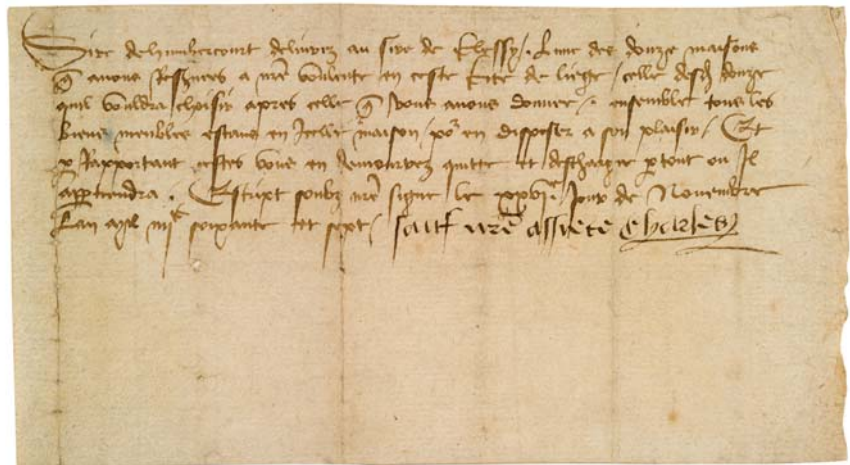 Sire de humbercourt delivrez au sire de Clessy / lune des douze maisons
q̄ avons Reservees a nr̄e voulente en ceste Cite de liege / celle desd douze
quil vouldra choisir apres celle q̄ vous avons donnee / ensemble tous les
biens meubles estans en Icelle maison / por en disposer a son plaisir / Et
p Rapportant cestes vous en demourrez quitte et deschargie p tout ou Il
appertiendra . Escript soubz nr̄e signe le xxvie Jour de Novembre
Lan mil iiiic soixante et sept / sauf nr̄e assiete Charles